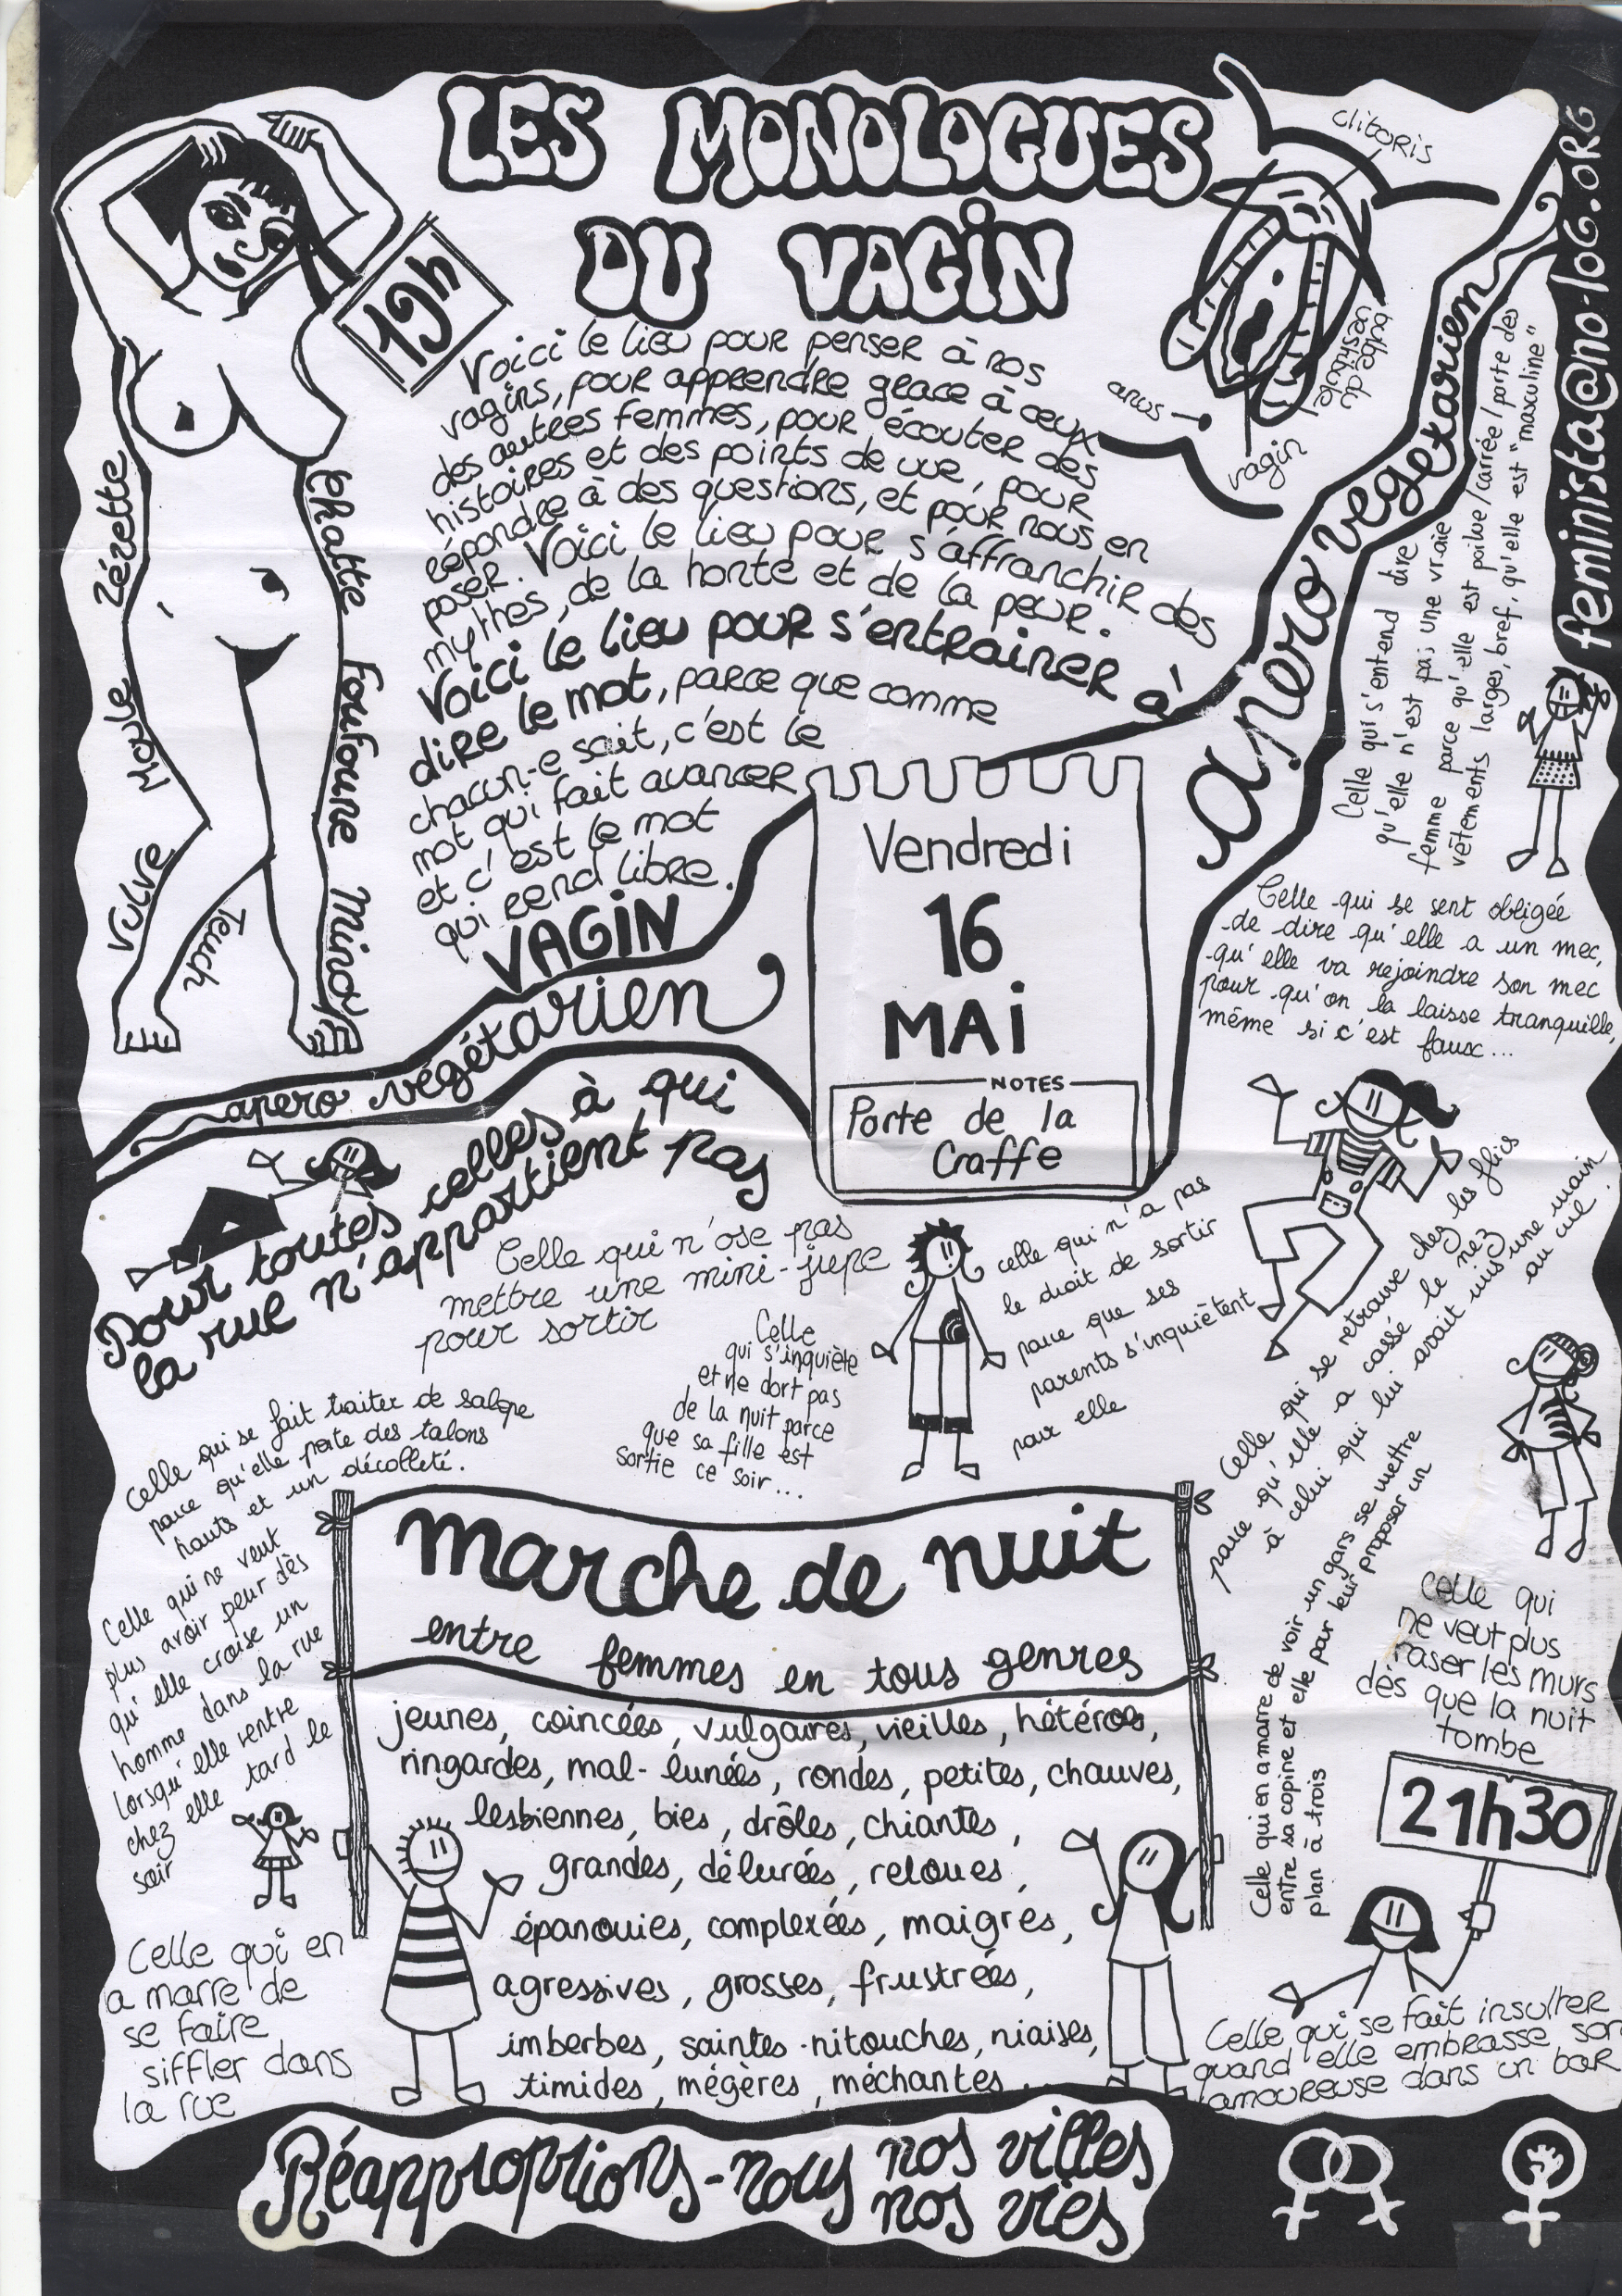 LES MONOLOGUES
DU VAGIN
19h
Voici le lieu pour penser à nos
vagins, pour apprendre grace à ceux
des autres femmes, pour écouter des
histoires et des points de vue, pour
répondre à des questions, et pour nous en
poser. Voici le lieu pour s'affranchir des
mythes, de la honte et de la peur.
Voici le lieu pour s'entrainer à
dire le mot, parce que comme
chacun-e sait, c'est le
mot qui fait avancer
et c'est le mot
qui rend libre.
VAGIN
clitoris
bulbe du
vestibule
anus
vagin
Zézette
Moule
Vulve
Teuch
Chatte
Foufoune
Minou
feminista@no-log.org
apero végétarien
apero vegetarien
Vendredi
16
MAi
NOTES
Porte de la
Craffe
Celle qui s'entend dire
qu'elle n'est pas une vraie
femme parce qu'elle est poilue/carrée/porte des
vêtements larges, bref, qu'elle est "masculine"
Celle qui se sent obligée
de dire qu'elle a un mec,
qu'elle va rejoindre son mec
pour qu'on la laisse tranquille,
même si c'est faux...
Pour toutes celles à qui
la rue n'appartient pas
Celle qui n'ose pas
mettre une mini-jupe
pour sortir
Celle
qui s'inquiète
et ne dort pas
de la nuit parce
que sa fille est
sortie ce soir...
celle qui n'a pas
le droit de sortir
parce que ses
parents s'inquiètent
pour elle
Celle qui se retrouve chez les flics
parce qu'elle a cassé le nez
à celui qui lui avait mis une main
au cul.
Celle qui se fait traiter de salope
parce qu'elle porte des talons
hauts et un décolleté.
Celle qui ne veut
plus avoir peur dès
qu'elle croise un
homme dans la rue
lorsqu'elle rentre
chez elle tard le
soir
Celle qui en a marre de voir un gars se mettre
entre sa copine et elle pour leur proposer un
plan à trois
Celle qui
ne veut plus
raser les murs
dés que la nuit
tombe
marche de nuit
entre femmes en tous genres
jeunes, coincées, vulgaires, vieilles, hétéros,
ringardes, mal-lunées, rondes, petites, chauves,
lesbiennes, bies, drôles, chiantes,
grandes, délurées, reloues,
épanouies, complexées, maigres,
agressives, grosses, frustrées,
imberbes, saintes-nitouches, niaises,
timides, mégères, méchantes...
21h30
Celle qui en
a marre de
se faire
siffler dans
la rue
Celle qui se fait insulter
quand elle embrasse son
amoureuse dans un bar
Réapproprions-nous nos villes
nos vies